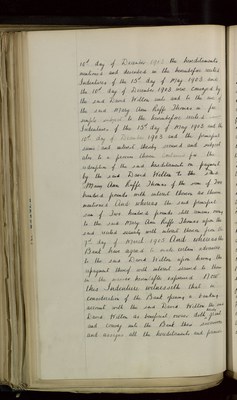 10th day of December 1903 the hereditaments
mentioned and described in the hereinbefore recited
Indentures of the 13th day of May 1903 and
the 10th day of December 1903 were conveyed by
the said David Willen unto and to the use of
the said Mary Ann Kuff Thomas in fee
simple subject to the hereinbefore recited
Indentures of the 13th day of May 1903 and the
10th day of December 1903 and the principal
sums and interest thereby secured and subject
also to a proviso therein contained for the
redemption of the said hereditaments on payment
by the said David Willen to the said
Mary Ann Thomas of the sum of Two
hundred pounds with interest thereon as therein
mentioned And whereas the said principal
sum of Two hundred pounds still remains owing
to the said Mary Ann Thomas upon the
said recited security with interest thereon from the
day of March 1905 And whereas the
Bank have agreed to make certain advances
to the said David Willen upon having the
repayment thereof with interest secured to them
in the manner hereinafter expressed Now
this Indenture witnesseth that in
consideration of the Bank opening a banking
account with the said David Willen the said
David Willen as beneficial owner doth grant
and convey unto the Bank their successors
and assigns all the hereditaments and premises